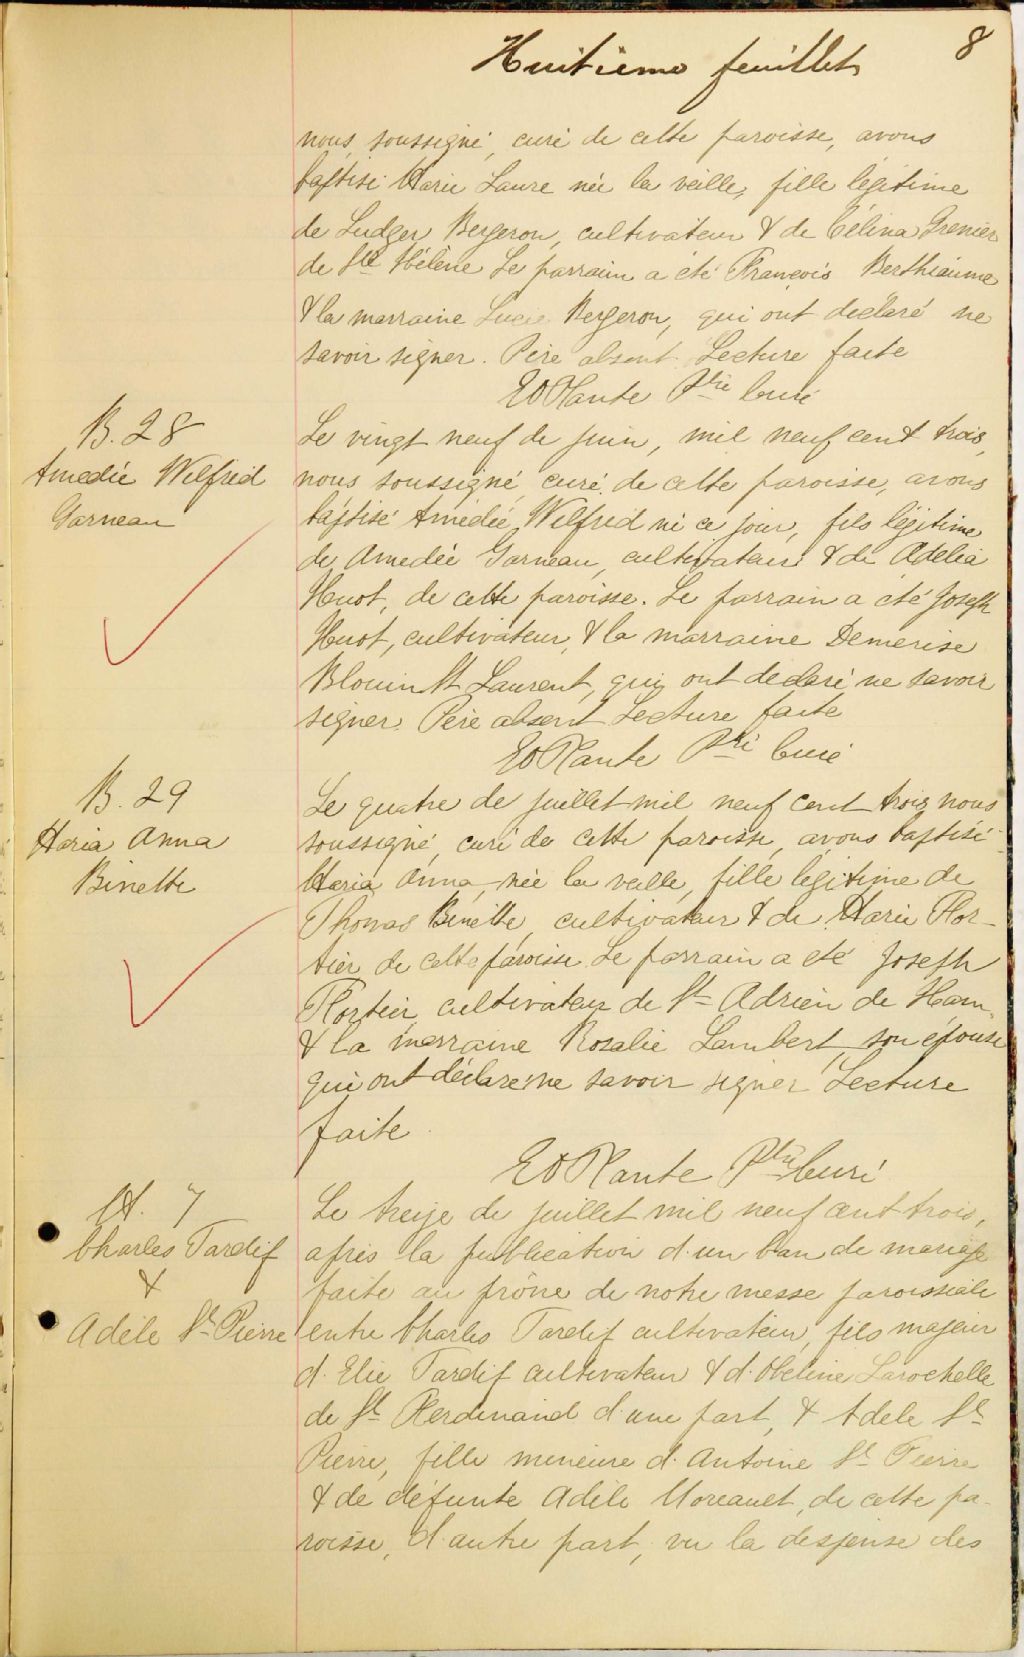 8
Huitième feuillet
nous soussigné, curé de cette paroisse, avons
baptisé Marie Laure née la veille, fille légitime
de Ludger Bergeron, cultivateur & de Célina Grenier
de Ste Hélène Le parrain a été François Berthiaume
& la marraine Lucie Bergeron, qui ont déclaré ne
savoir signer. Père absent Lecture faite
EO Plante Ptre Curé
B. 28
Amedée Wilfrid
Garneau
Le vingt neuf de juin, mil neuf cent trois,
nous soussigné curé de cette paroisse, avons
baptisé Amédée Wilfrid né ce jour, fils légitime
de Amedée Garneau, cultivateur & de Adelia
Huot, de cette paroisse. Le parrain a été Joseph
Huot, cultivateur, & la marraine Demerise
Blouin St Laurent, qui ont declaré ne savoir
signer. Père absent Lecture faite
EO Plante Ptre Curé
B. 29
Maria Anna
Binette
Le quatre de juillet mil neuf cent trois nous
soussigné, curé de cette paroisse, avons baptisé
Maria Anna, née la veille, fille légitime de
Thomas Binette, cultivateur & de Marie For-
tier de cette paroisse Le parrain a été Joseph
Fortier, cultivateur de St Adrien de Ham,
& la marraine Rosalie Lambert, son épouse
qui ont déclaré ne savoir signer Lecture
faite.
EO Plante Ptre Curé
M. 7
Charles Tardif
&
Adèle St Pierre
Le treize de juillet mil neuf cent trois,
après la publication d'un ban de mariage
faite au prône de notre messe paroissiale
entre Charles Tardif cultivateur, fils majeur
d'Elie Tardif cultivateur & d'Obeline Larochelle
de St Ferdinand d'une part, & Adele St
Pierre, fille mineure d'Antoine St Pierre
& de défunte Adèle Moreault, de cette pa-
roisse, d'autre part, vu la dispense des